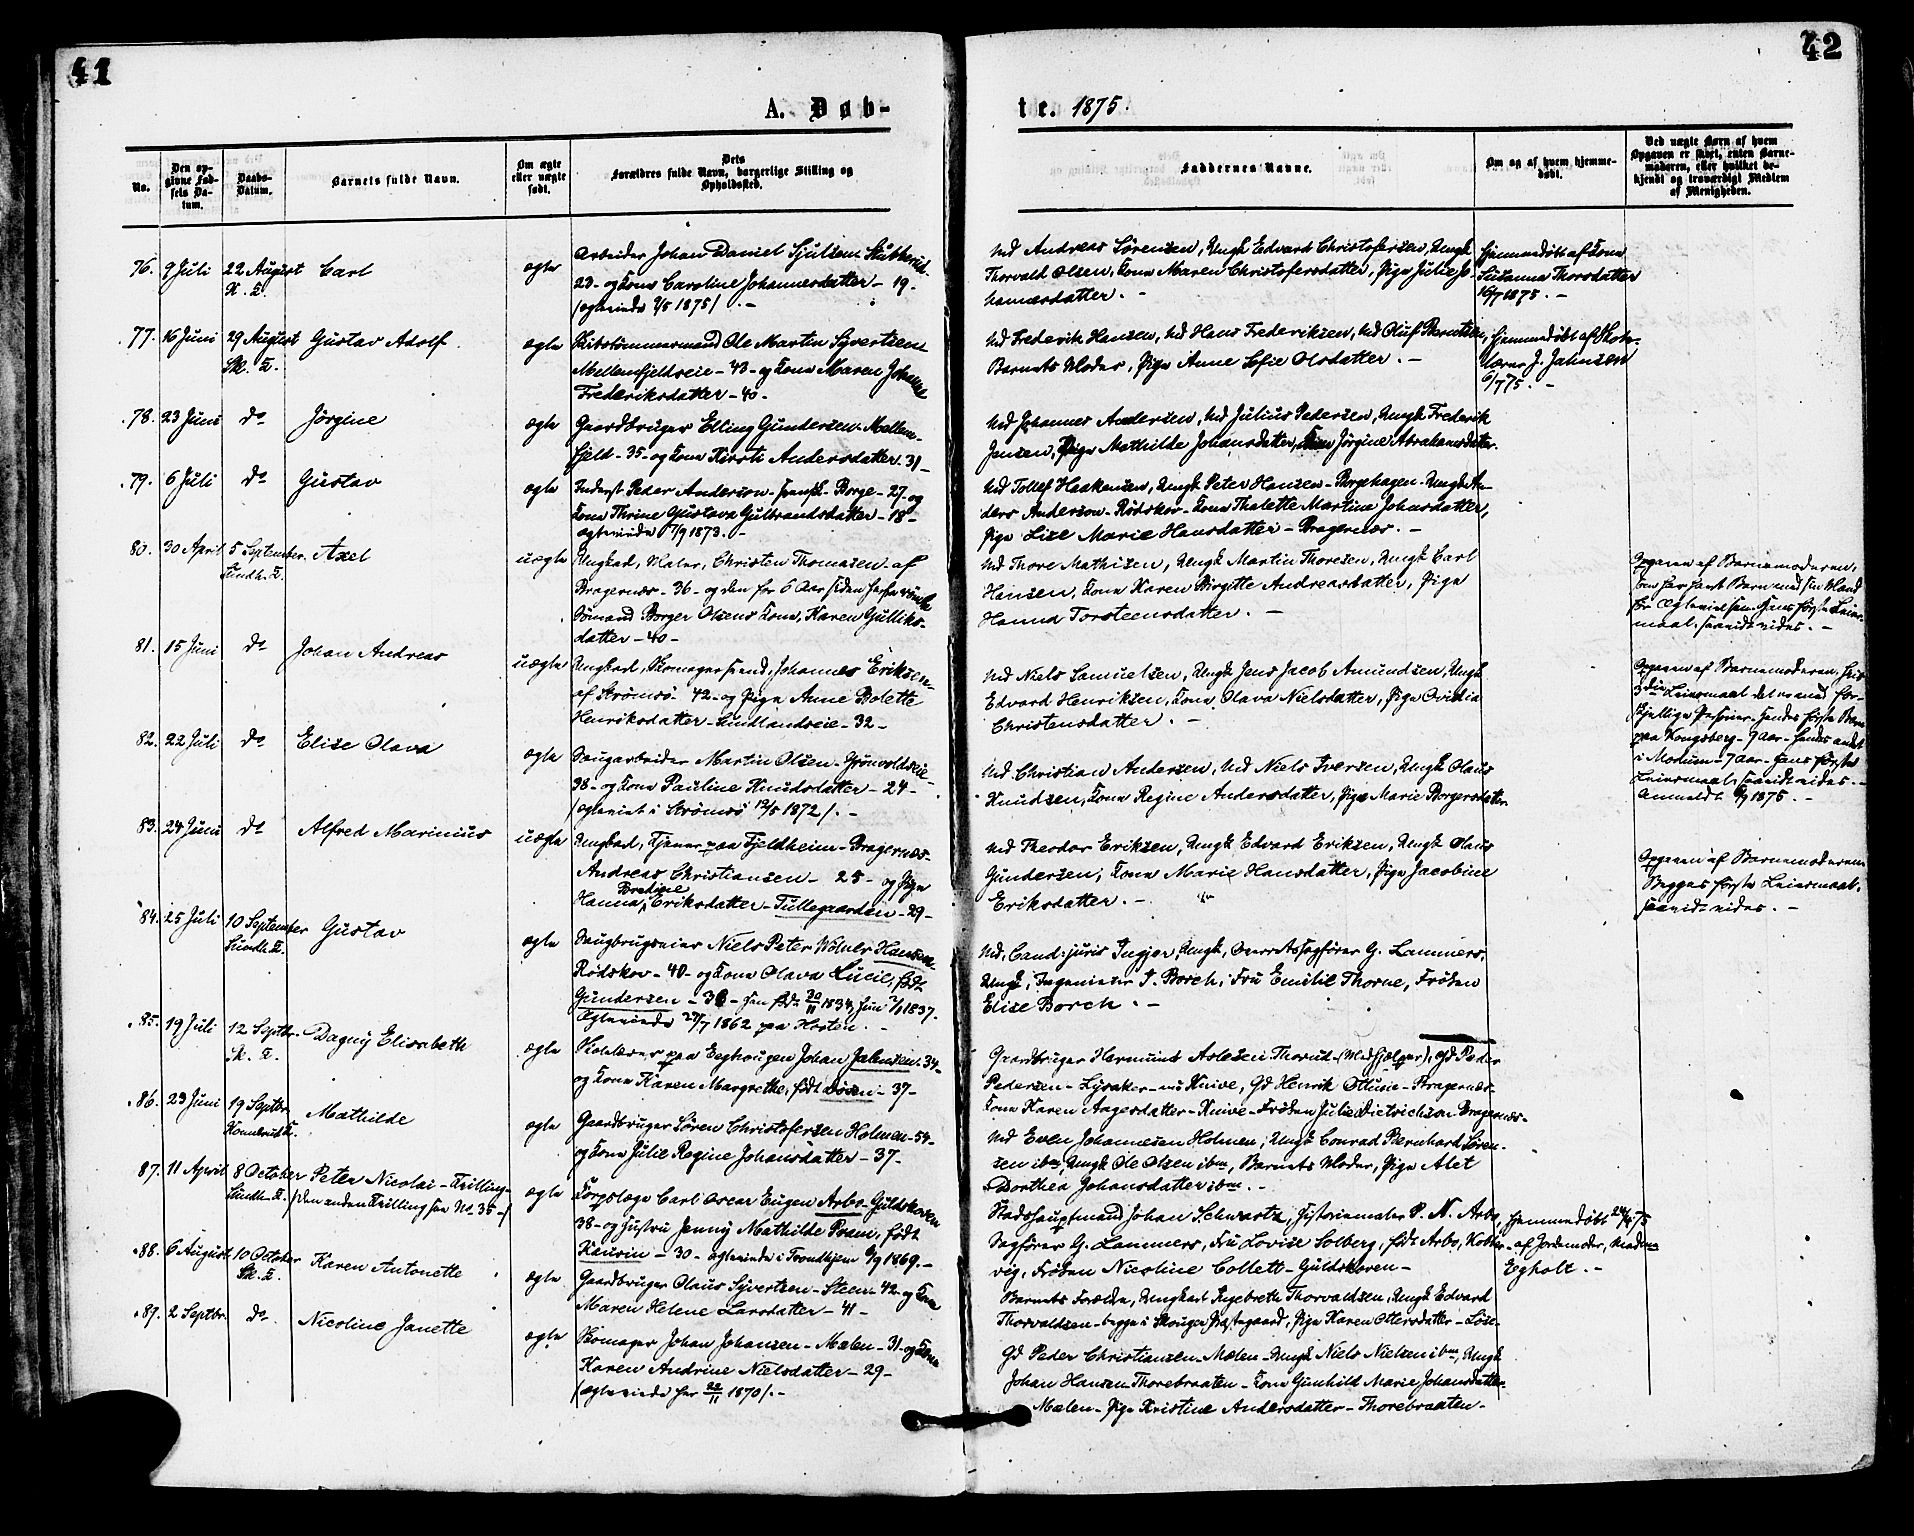 41
42
A. Døb-
te. 1875.
No.
Den opgivne Fødsels Datum.
Daabs-Datum.
Barnets fulde Navn.
Om ægte eller uægte født.
Dets Forældres fulde Navn, borgerlige Stilling og Opholdssted.
Faddernes Navne.
Om og af hvem hjemmedøbt.
Ved uægte Børn af hvem Opgaven er skeet, enten Barnemoderen, eller hvilket bekjendt og troværdigt Medlem af Menigheden.
76. 9 Juli 22 August Carl ægte Arbeider Johan Daniel Sjulsen
23- og Kone Caroline Johannesdatter - 19-
1875/. -
Andreas Sørensen, Ungk Edvard Christofersen, Ungk
Thorvald Olsen, Kone Maren Christofersdatter, Pige Julie Jo-
hannesdatter. -
Hjemmedøbt af Kone
Susanna Thorsdatter
16/7 1875. -
77. 16 Juni 29 August Gustav Adolf ægte Skibstømmermand Ole Martin Syvertsen
Mellemfjeldseie - 43- og Kone Maren
Frederiksdatter - 40-
Frederik Hansen, Hans Frederiksen, Oluf Berntsen,
Barnets Moder, Pige Anne Sofie Olsdatter. -
Hjemmedøbt af Skole-
lærer J. Jahnsen
6/7 75. -
78. 23 Juni do Jørgine ægte Gaardbruger Elling Gundersen - Mellem-
fjeld - 35- og Kone Kirsti Andersdatter 31-
Johannes Andersen, Julius Pedersen, Ungk Frederik
Jensen, Pige Mathilde Johansdatter, Kone Jørgine Abrahamsdatter.
79. 6 Juli do Gustav ægte Inderst Peder Anderson - Borge - 27- og
Kone Thrine Gustava Gulbrandsdatter - 18-
1873. -
Tollef Haakensen, Ungk Peter Hansen - Borgehagen - Ungk An-
ders Anderson - Rødskov - Kone Thalette Martine Johnsdatter,
Pige Lise Marie Hansdatter - Bragernæs. -
80. 30 April 5 September Axel uægte Ungkarl, Maler, Christen Thomasen af
Bragernæs - 36- og den for 6 Aar siden
Sømand Borger Olsens Kone, Karen Gulliks-
datter - 40-
Thore Mathisen, Ungk Martin Thoresen, Ungk Carl
Hansen, Kone Karen Birgitte Andreasdatter, Pige
Hanna Torsteensdatter. -
Opgaven af Barnemoderen,
81. 15 Juni do Johan Andreas uægte Ungkarl, Johannes Eriksen
af Strømsø 42- og Pige Anne Bolette
Henriksdatter - Sundlandseie - 32-
Niels Samuelsen, Ungk Jens Jacob Amundsen, Ungk
Edvard Henriksen, Kone Olava Nielsdatter, Pige
Christensdatter. -
Opgaven af Barnemoderen,
paa Kongsberg - 9 Aar -
i Modum - 7 Aar -
1875. -
82. 22 Juli do Elise Olava ægte Saugarbeider Martin Olsen - Grønvoldseie
38- og Kone Pauline Knudsdatter - 24-
i Strømsø 1872/. -
Christian Andersen, Niels Iversen, Ungk Olaus
Knudsen, Kone Regine Andersdatter, Pige Marie Borgersdatter
83. 24 Juni do Alfred Marinius uægte Ungkarl, Tjener paa Fjeldheim - Bragernæs-
Andreas Christiansen - 25- og Pige
Hanna Bredine Eriksdatter - Tullegaarden - 29-
Theodor Eriksen, Ungk Edvard Eriksen, Ungk Olaus
Gundersen, Kone Marie Hansdatter, Pige Jacobine
Eriksdatter. -
Opgaven af Barnemoderen
Begges første Leiermaal,
84. 25 Juli 10 September Gustav ægte Saugbrugseier Niels Peter Hansen
Rødskov - 40- og Kone Olava Lucie, født
Gundersen - 38- 1837.
1862 paa Horten. -
Cand: juris Ungk, Overretssagfører G. Lammers,
Ungk, Ingeniør Borch, Fru Emilie Thorne, Frøken
Elise Borch. -
85. 19 Juli 12 Septbr. Dagny Elisabeth ægte paa Eeghougen Johan Jahnsen 34-
og Kone Karen Margrethe, født - 37-
Gaardbruger Hermund Aslesen Thorud - (Medhjælper), Gd Peder
Pedersen - Lysaker - Knive, Gd Henrik - Bragernæs-
Kone Karen Aagesdatter - Knive - Frøken Julie Dietrichson Bragernæs-
86. 23 Juni 19 Septbr Mathilde ægte Gaardbruger Søren Christofersen Holmen - 54-
og Kone Julie Regine Johansdatter - 37-
Even Johannesen Holmen, Ungk Conrad Bernhard Søren-
sen ibm, Ungk Ole Olsen ibm, Barnets Moder, Pige Alet
Dorthea Johansdatter ibm. -
87. 11 April 8 October Peter Nicolai - Trilling- ægte Korpslæge Carl Oscar Eugen Arbo - Guldskoven
/den anden Trilling see No 35-/
38- og Hustru Jenny Mathilde Pram, født
Kaurin - 30- i Trondhjem 1869. -
Stadshauptmand Johan Schwartz, Historiemaler P. N. Arbo,
Sagfører G. Lammers, Fru Lovise Solberg, født Arbo,
Frøken Nicoline Collett - Guldskoven -
Hjemmedøbt
af Jordemoder, Madam
Egholt. -
88. 6 August 10 October Karen Antonette ægte Gaardbruger Olaus Syvertsen - Steen - 42- og Kone
Maren Helene Larsdatter - 41-
Barnets Forældre, Ungkarl Ingebreth Thorvaldsen, Ungk Edvard
Thorvaldsen - begge i Skouger Præstegaard, Pige Karen Ottersdatter -
87. 2 Septbr. do. Nicoline Janette ægte Skomager Johan Johansen - Mælen - 31- og Kone
Karen Andrine Nielsdatter - 29-
1870/. -
Gd Peder Christiansen - Mælen - Ungk Niels Nielsen ibm, Ungk
Johan Hansen Thorebraaten - Kone Gunhild Marie Johansdatter
Mælen - Pige Kristine Andersdatter - Thorebraaten -